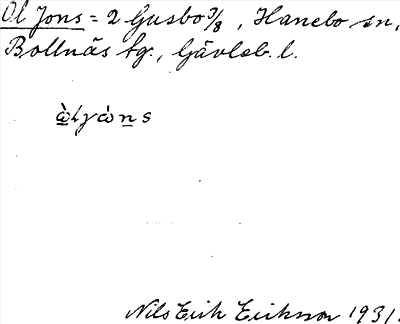 Ol Jons = 2 Gusbo 3/8, Hanebo sn,
Bollnäs tg., Gävleb. l.
ὼlyὼns
Nils Erik Erikson 1931.